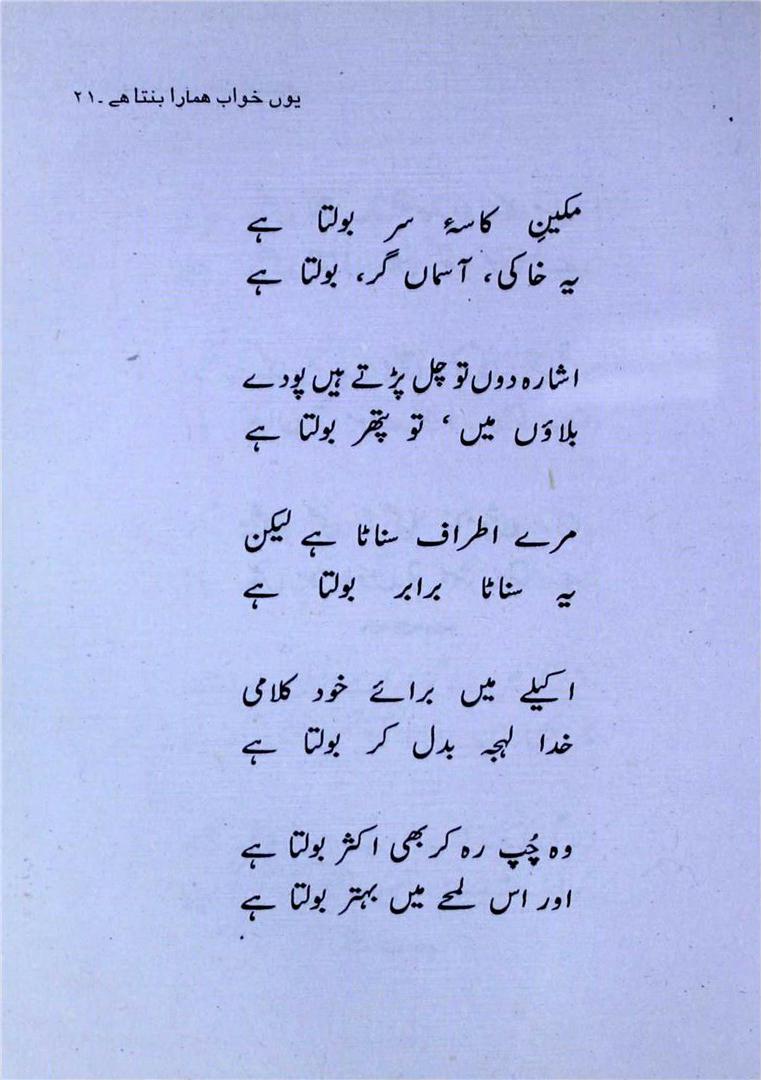 یوں خواب ھمارا بنتا ھے ۔ ۲۱
مکینِ کاسۂ سر بولتا ہے
یہ خاکی، آسماں گر، بولتا ہے
اشارہ دوں تو چل پڑتے ہیں پودے
بلاؤں میں ‘ تو پتھر بولتا ہے
مرے اطراف سناٹا ہے لیکن
یہ سناٹا برابر بولتا ہے
اکیلے میں برائے خود کلامی
خدا لہجہ بدل کر بولتا ہے
وہ چُپ رہ کر بھی اکثر بولتا ہے
اور اس لمحے میں بہتر بولتا ہے